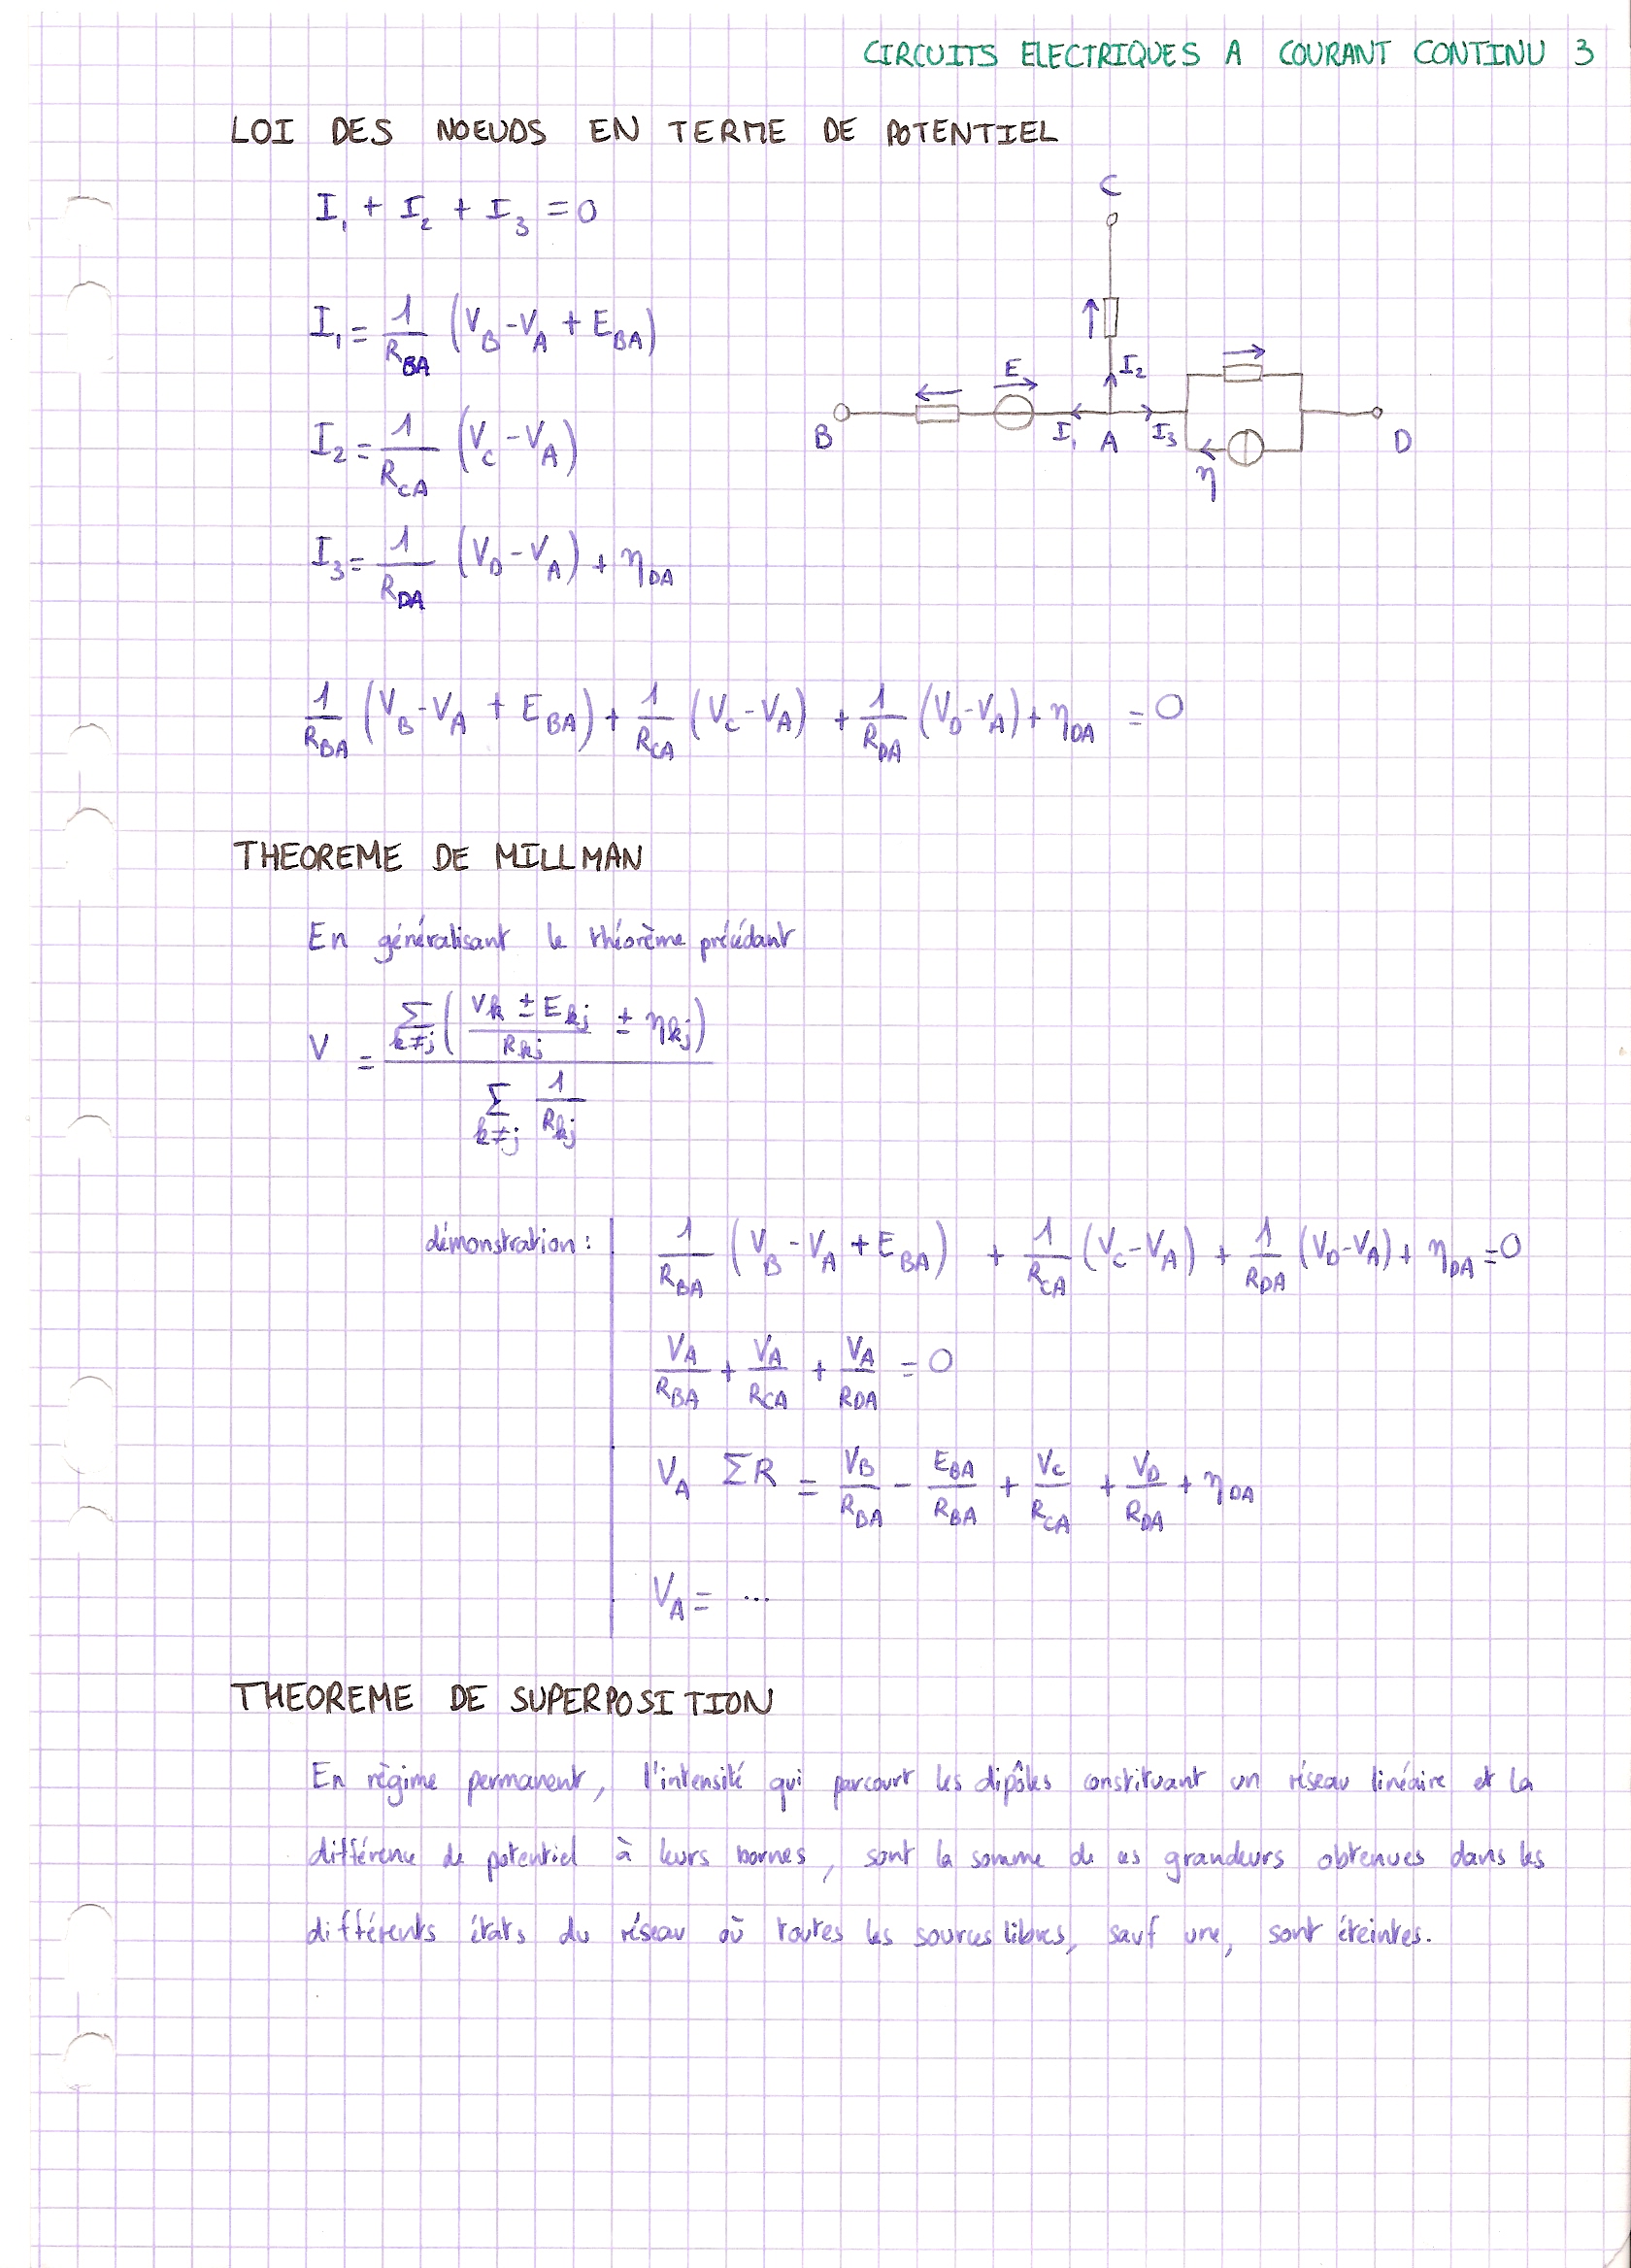 CIRCUITS ELECTRIQUES A COURANT CONTINU 3
LOI DES NOEUDS EN TERME DE POTENTIEL
I₁ + I₂ + I₃ = 0
I₁ = 1/R_BA (V_B - V_A + E_BA)
I₂ = 1/R_CA (V_C - V_A)
I₃ = 1/R_DA (V_D - V_A) + η_DA
C
I₂
E
B
I₁
A
I₃
η
D
1/R_BA (V_B - V_A + E_BA) + 1/R_CA (V_C - V_A) + 1/R_DA (V_D - V_A) + η_DA = 0
THEOREME DE MILLMAN
En généralisant le théorème précédant
V = Σ_{k≠j} ((V_k ± E_kj)/R_kj ± η_kj) / Σ_{k≠j} 1/R_kj
démonstration : 1/R_BA (V_B - V_A + E_BA) + 1/R_CA (V_C - V_A) + 1/R_DA (V_D - V_A) + η_DA = 0
V_A/R_BA + V_A/R_CA + V_A/R_DA = 0
V_A ΣR = V_B/R_BA - E_BA/R_BA + V_C/R_CA + V_D/R_DA + η_DA
V_A = ...
THEOREME DE SUPERPOSITION
En règime permanent, l'intensité qui parcourt les dipôles constituant un réseau linéaire et la
différence de potentiel à leurs bornes, sont la somme de ces grandeurs obtenues dans les
différents états du réseau où toutes les sources libres, sauf une, sont éteintes.